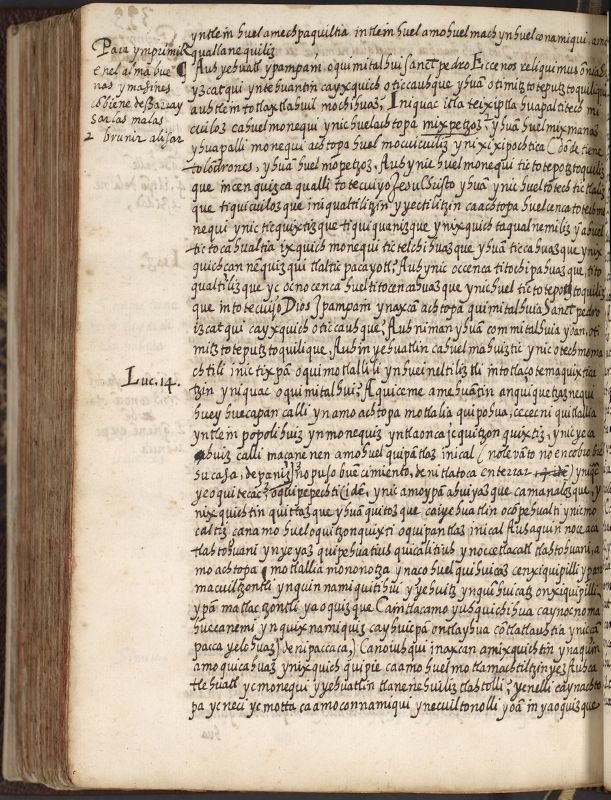 yntlein huel amech paquiltia in tlein huel amo huel mach ynhuel conamiqui, amo
quallanequiliz
Auh yehuatl ypampam. oquimitalhui sanct pedro Ecce nos reliquimus omnia
yzcatqui yntehuantin ca yxquich oticcauhque yhuã otimitztotepotztoquilique
auh tlein totlaxtlahuil mochihuaz; Iniquac itla teixiptla huapaltitech mi
cuiloz ca huel monequi ynic huel achtopa mixpetzoz. yhuã huel mixmanaz
yhuapalli monequi achtopa huel mocuicuiliz yn ixixipochtica (do de tiene
tolodrones, yhuã huel mopetzoz. Auh ynic huel monequi tictotepotztoquiliz
que in cenquizca qualli totecuiyo Jesu Christo yhuã ynic huel totech tictlaliz
que tiquicuilozque in iqualtilitzin yyectilitzin ca achtopa huel cenca totech mo
nequi ynic ticquixtizque tiquiquanizque ynixquich taqualnemiliz yn ahuel
tictocahualtia ixquich monequi tictelchihuazque yhuã ticcahuazque ynix
quichcan nenquizqui tlalticpacayotl. Auh ynic occenca titochipahuazque, tito
qualtilizque yc ocno cenca huel titocencahuazque ynic huel tictotepotztoquiliz
que in totecuiyo Dios Jpampam ynaxcã achtopa quimitalhuia Sanct pedro
izcatqui ca yxquich oticcauhque. Auh niman yhuã commitalhuia yoan, oti
mitztoteputztoquilique. Auh in yehuatlin ca huel mahuiztic ynic otechmoma
chtili inictixpã oquimotlalili ynhuel neltiliztli in totlaçotemaquixtica
tzin yniquac oquimitalhui; Aquiceme amehuãtin anquiquetzaznequi
huey huecapan calli yn amo achtopa motlalia quipohua, icceceni quitlalia
yntlein popolihuiz yn monequiz yntlaonca ic quitzonquixtiz, ynic yeca
huiz calli macane nen amo huel quipãtlaz inical (nole vãto no encobro bië
su casa, de paniz) no puso buẽ cimiento, de nitlatoca enterrar ynique
yeoquitecac, oquipepechti (ide, ynic amo ypã ahuiyazque camanalozque, y
nixquichtin quittazque yhuã quitozque ca iyehuatlin ocõpehualti ynicmo
caltiz can amo huel oquitzonquixti oquipantlaz inical Auh aquin nocecaca
tlahtohuani ynyeyaz quipehuatiuh quicalitiuh ynoccetlacatl tlahtohuani, a
mo achtopa motlallia mononotza ynaço huel quihuicaz cenxiquipilli ypan
macuiltzontli ynquinnamiquitihui yyehuitz ynquihuicatz onxiquipilli
ypã matlactzontli yaoquizque Caintlacamo yuhquichihua caynocnoma
hueca nemi ynquixnamiquiz cayhuicpa ontlayhua cõtlatlauhtia yniccã
pacca yelohuaz) de nipaccaca,) Canoiuhqui inaxcan amixquichtin ynaquin
amo quicahuaz ynixquich quipie caamo huel motlamachtiltzin yez Auh ca
tlehuatl yc monequi yyehuatlin tlanenehuiliz tlahtolli; Yenelli ca ynachto
pa yc neci yc motta ca amo connamiqui ynecuiltonolli yoã in yaoquizque
Para ymprimir
en el alma bue
nas ymagines
cõbiene desbaray
zar las malas
2 brunir alisar
Luc. 14.